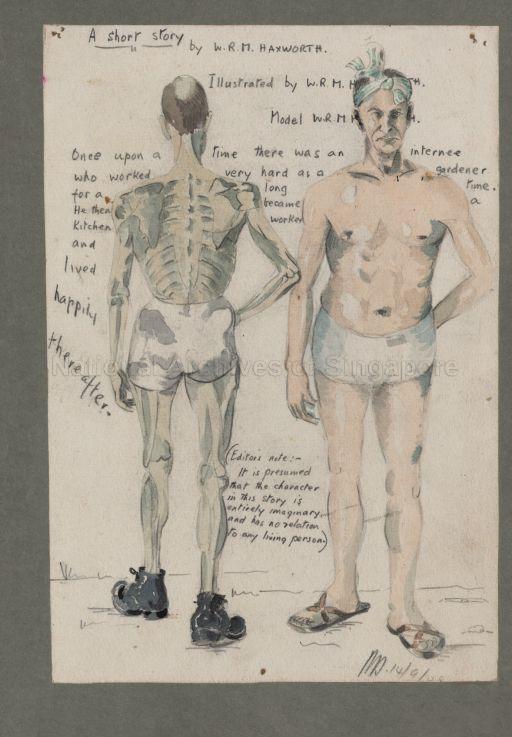 A short story by W.R.M. HAXWORTH.
Illustrated by W.R.M. H TH.
Model W.R.M H H.
Once upon a time there was an internee
who worked very hard as a gardener
for a long time.
He then became a
Kitchen worker
and
lived
happily
thereafter.
National Archives of Singapore
(Editor's note:-
It is presumed
that the character
in this story is
entirely imaginary
and has no relation
to any living person.)
14/9/